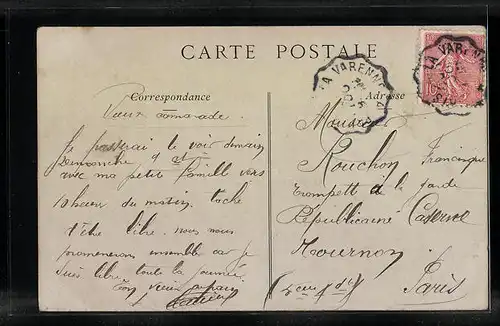 CARTE POSTALE
Correspondance
Adresse
LA VARENNE
LA VARENNE
Vieux camarade.
Je passerai te voir demain
Dimanche 9
avec ma petite famille vers
10 heures du matin. tache
d'être libre. nous nous
promenerons ensemble car je
suis libre toute la journée.
Ton vieux copain
Monsieur
Rouchon Francisque
trompette à la garde
Républicaine Caserne
Tournon
Paris